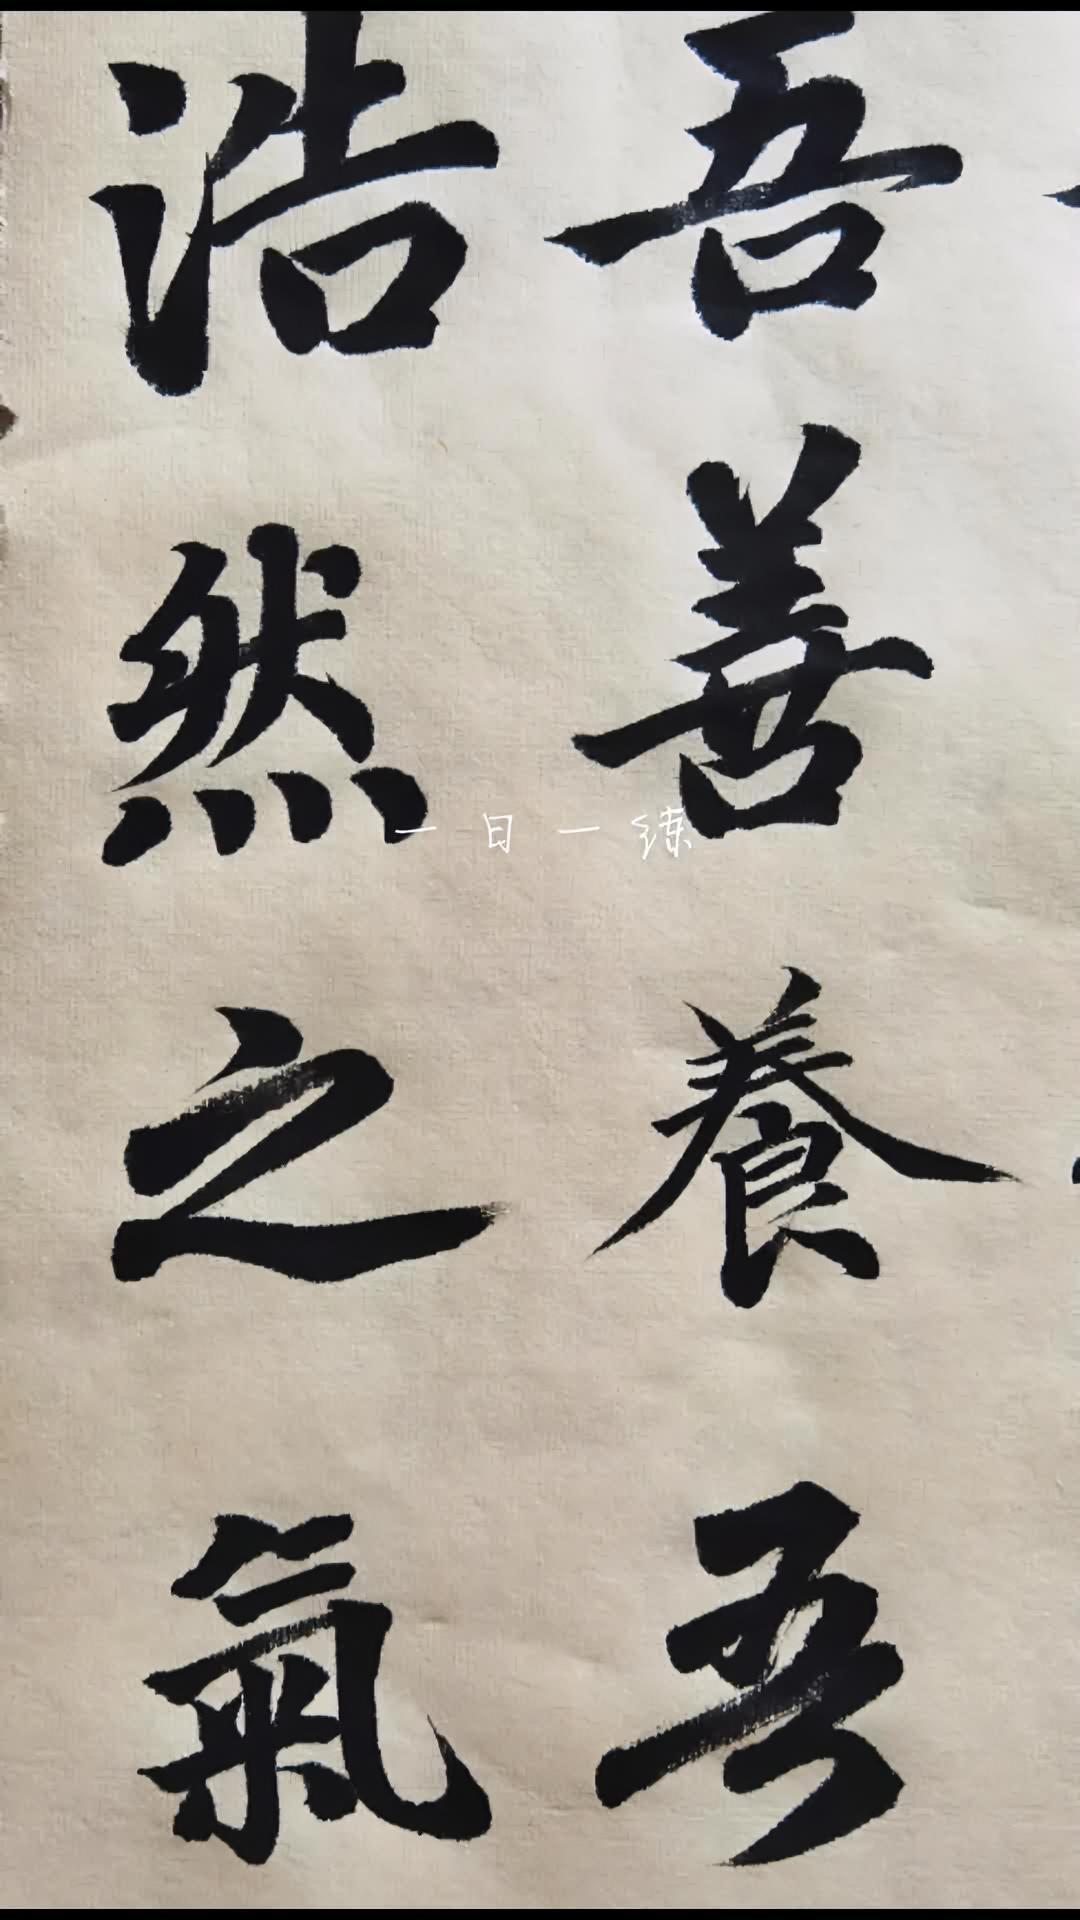 吾善養吾
浩然之氣
一日一练